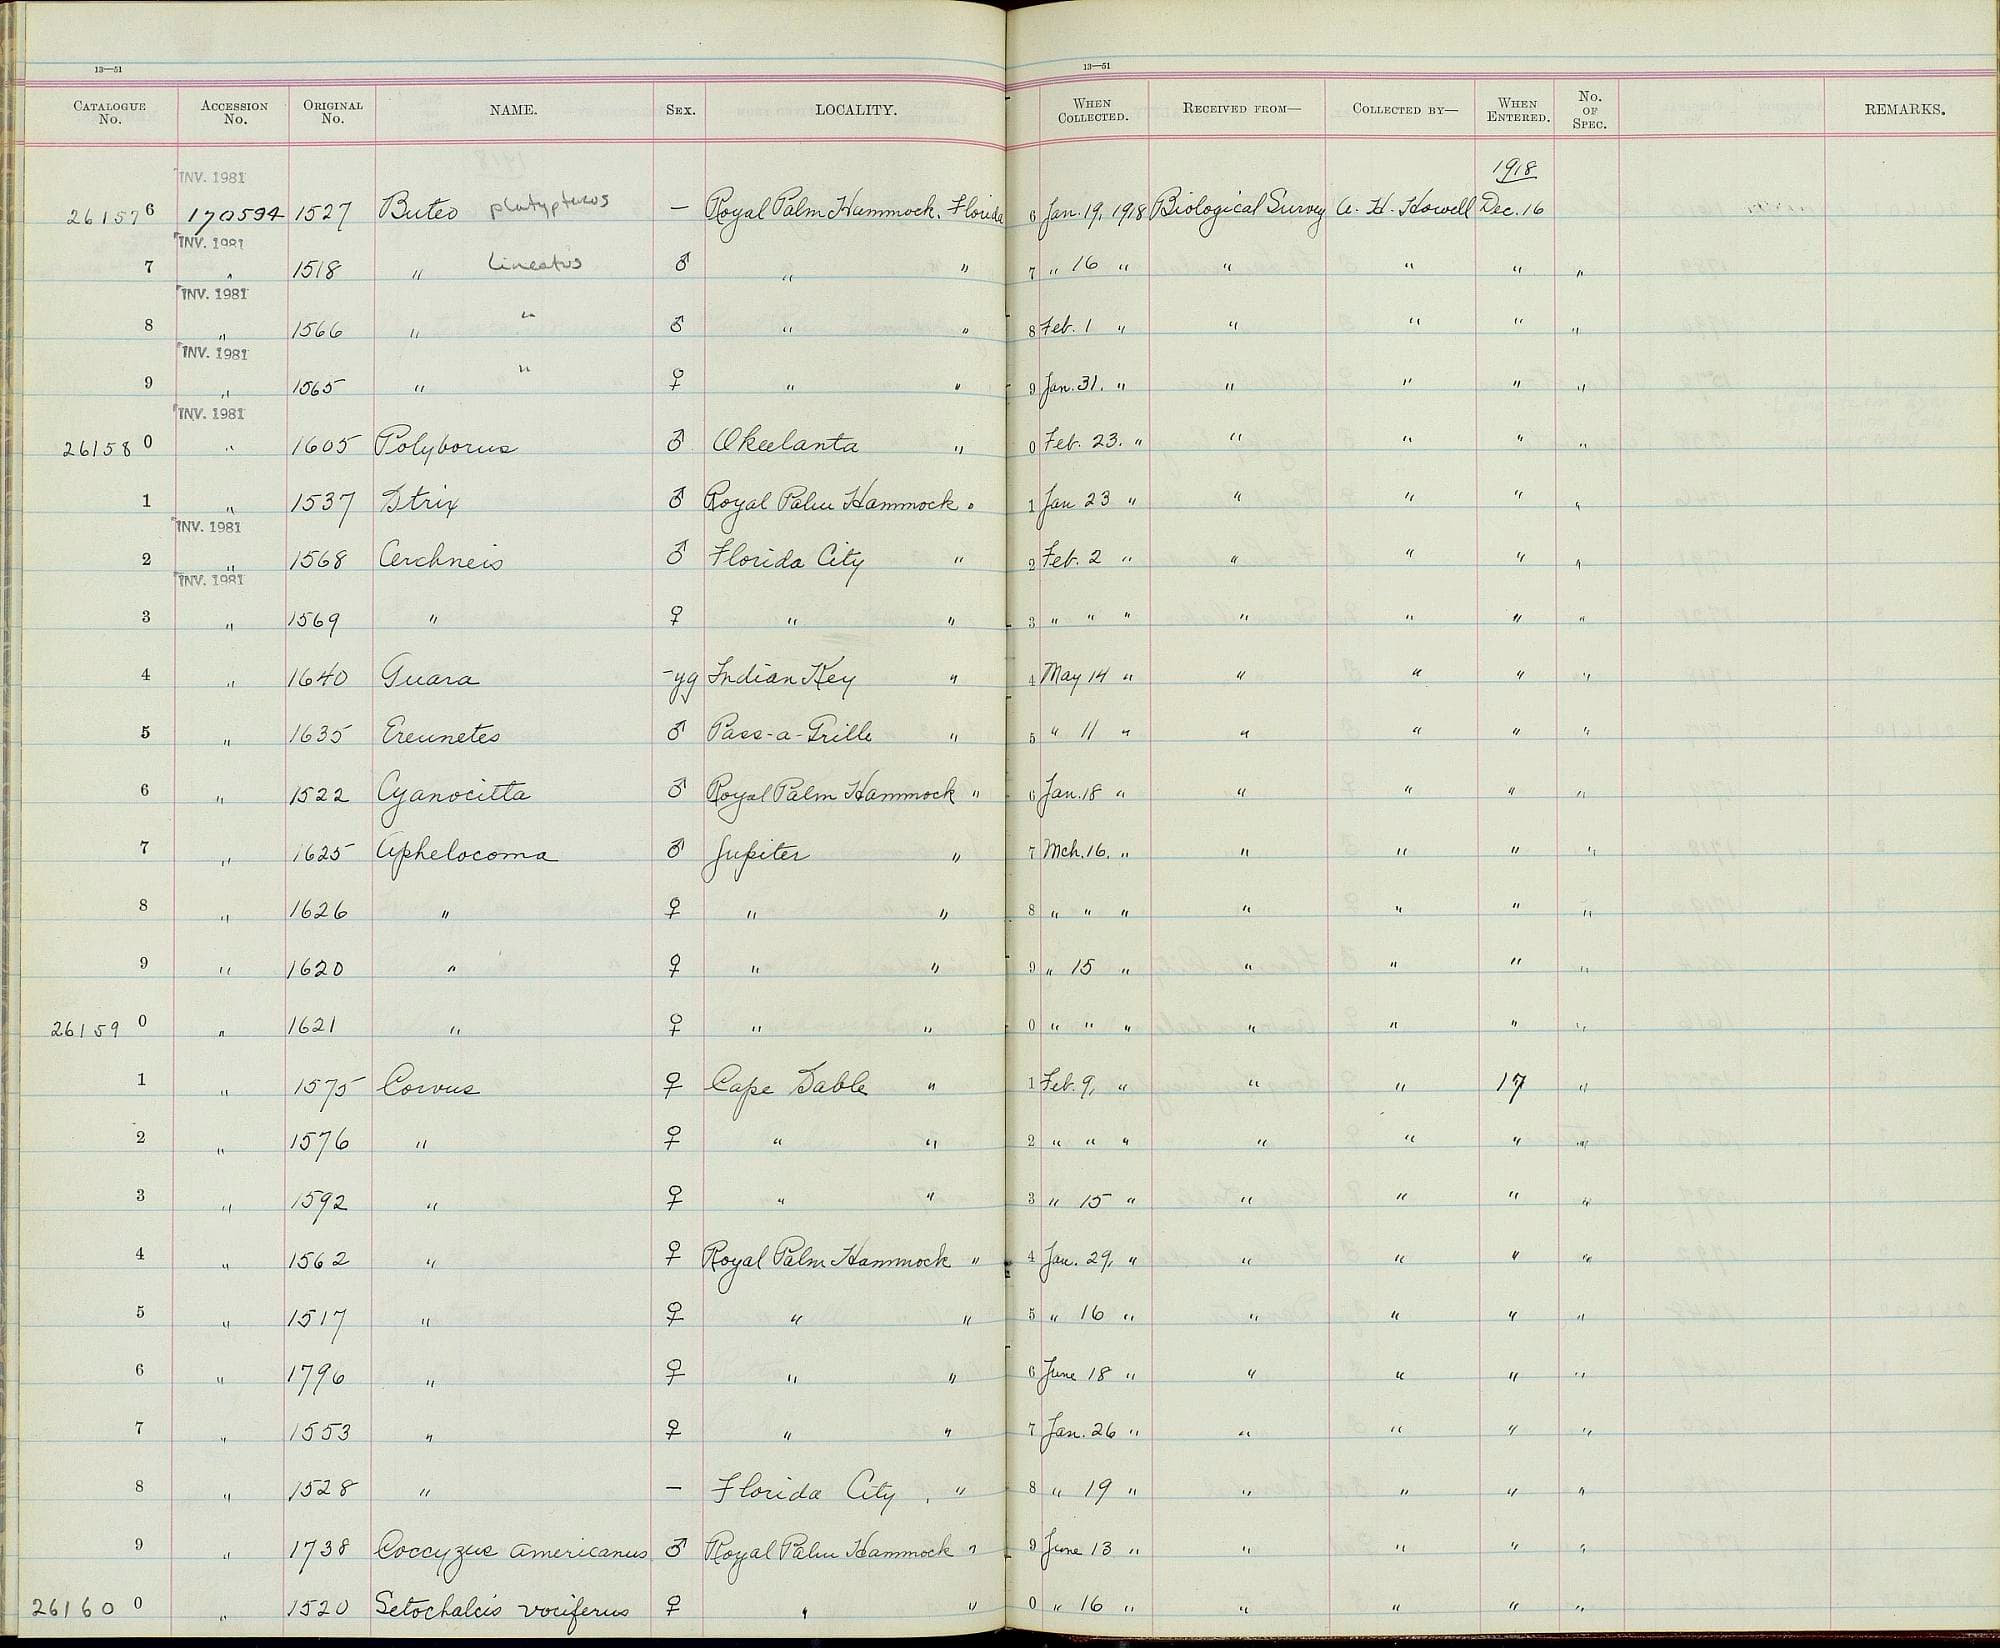 13—51 13—51
CATALOGUE No. ACCESSION No. ORIGINAL No. NAME. SEX. LOCALITY. WHEN COLLECTED. RECEIVED FROM— COLLECTED BY— WHEN ENTERED. No. OF SPEC. REMARKS.
INV. 1981 1918
261576 170594 1527 Buteo platypterus — Royal Palm Hammock, Florida 6 Jan. 19, 1918 Biological Survey A. H. Howell Dec. 16
INV. 1981
7 " 1518 " lineatus ♂ " " 7 " 16 " " " " "
INV. 1981
8 " 1566 " " ♂ " " 8 Feb. 1 " " " " "
INV. 1981
9 " 1565 " " ♀ " " 9 Jan. 31. " " " " "
INV. 1981
261580 " 1605 Polyborus ♂ Okeelanta " 0 Feb. 23. " " " " "
1 " 1537 Strix ♂ Royal Palm Hammock " 1 Jan 23 " " " " "
INV. 1981
2 " 1568 Cerchneis ♂ Florida City " 2 Feb. 2 " " " " "
INV. 1981
3 " 1569 " ♀ " " 3 " " " " " " "
4 " 1640 Guara - yg Indian Key " 4 May 14 " " " " "
5 " 1635 Ereunetes ♂ Pass-a-Grille " 5 " 11 " " " " "
6 " 1522 Cyanocitta ♂ Royal Palm Hammock " 6 Jan. 18 " " " " "
7 " 1625 Aphelocoma ♂ Jupiter " 7 Mch. 16. " " " " "
8 " 1626 " ♀ " " 8 " " " " " " "
9 " 1620 " ♀ " " 9 " 15 " " " " "
261590 " 1621 " ♀ " " 0 " " " " " " "
1 " 1575 Corvus ♀ Cape Sable " 1 Feb. 9, " " " 17 "
2 " 1576 " ♀ " " 2 " " " " " " "
3 " 1592 " ♀ " " 3 " 15 " " " " "
4 " 1562 " ♀ Royal Palm Hammock " 4 Jan. 29, " " " " "
5 " 1517 " ♀ " " 5 " 16 " " " " "
6 " 1796 " ♀ " " 6 June 18 " " " " "
7 " 1553 " ♀ " " 7 Jan. 26 " " " " "
8 " 1528 " — Florida City, " 8 " 19 " " " " "
9 " 1738 Coccyzus americanus ♂ Royal Palm Hammock " 9 June 13 " " " " "
261600 " 1520 Setochalcis vociferus ♀ " " 0 " 16 " " " " "